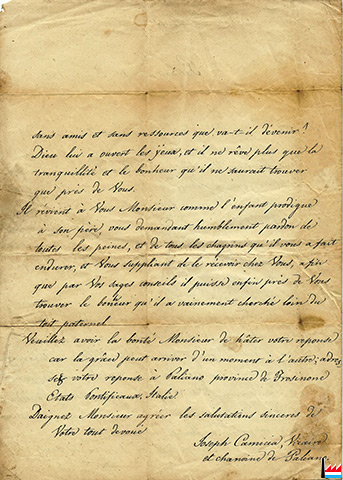 sans amis et sans ressources que va-t-il devenir?
Dieu lui a ouvert les yeux, et il ne rêve plus que la
tranquillité et le bonheur qu'il ne saurait trouver
que près de Vous.
Il revient à Vous Monsieur comme l'enfant prodigue
à son père, vous demandant humblement pardon de
toutes les peines, et de tous les chagrins qu'il vous a fait
endurer, et Vous suppliant de le recevoir chez Vous, afin
que par Vos sages conseils il puisse enfin près de Vous
trouver le boneur qu'il a vainement cherché loin du
toit paternel
Veuillez avoir la bonté Monsieur de hâter votre reponse
car la grâce peut arriver d'un moment à l'autre; adres
sez votre reponse à Paliano province de Frosinone
Etats Pontificaux, Italie.
Daignez Monsieur agréer les salutations sinceres de
Votre tout devoué
Joseph Vicaire
et chanoine de Paliano